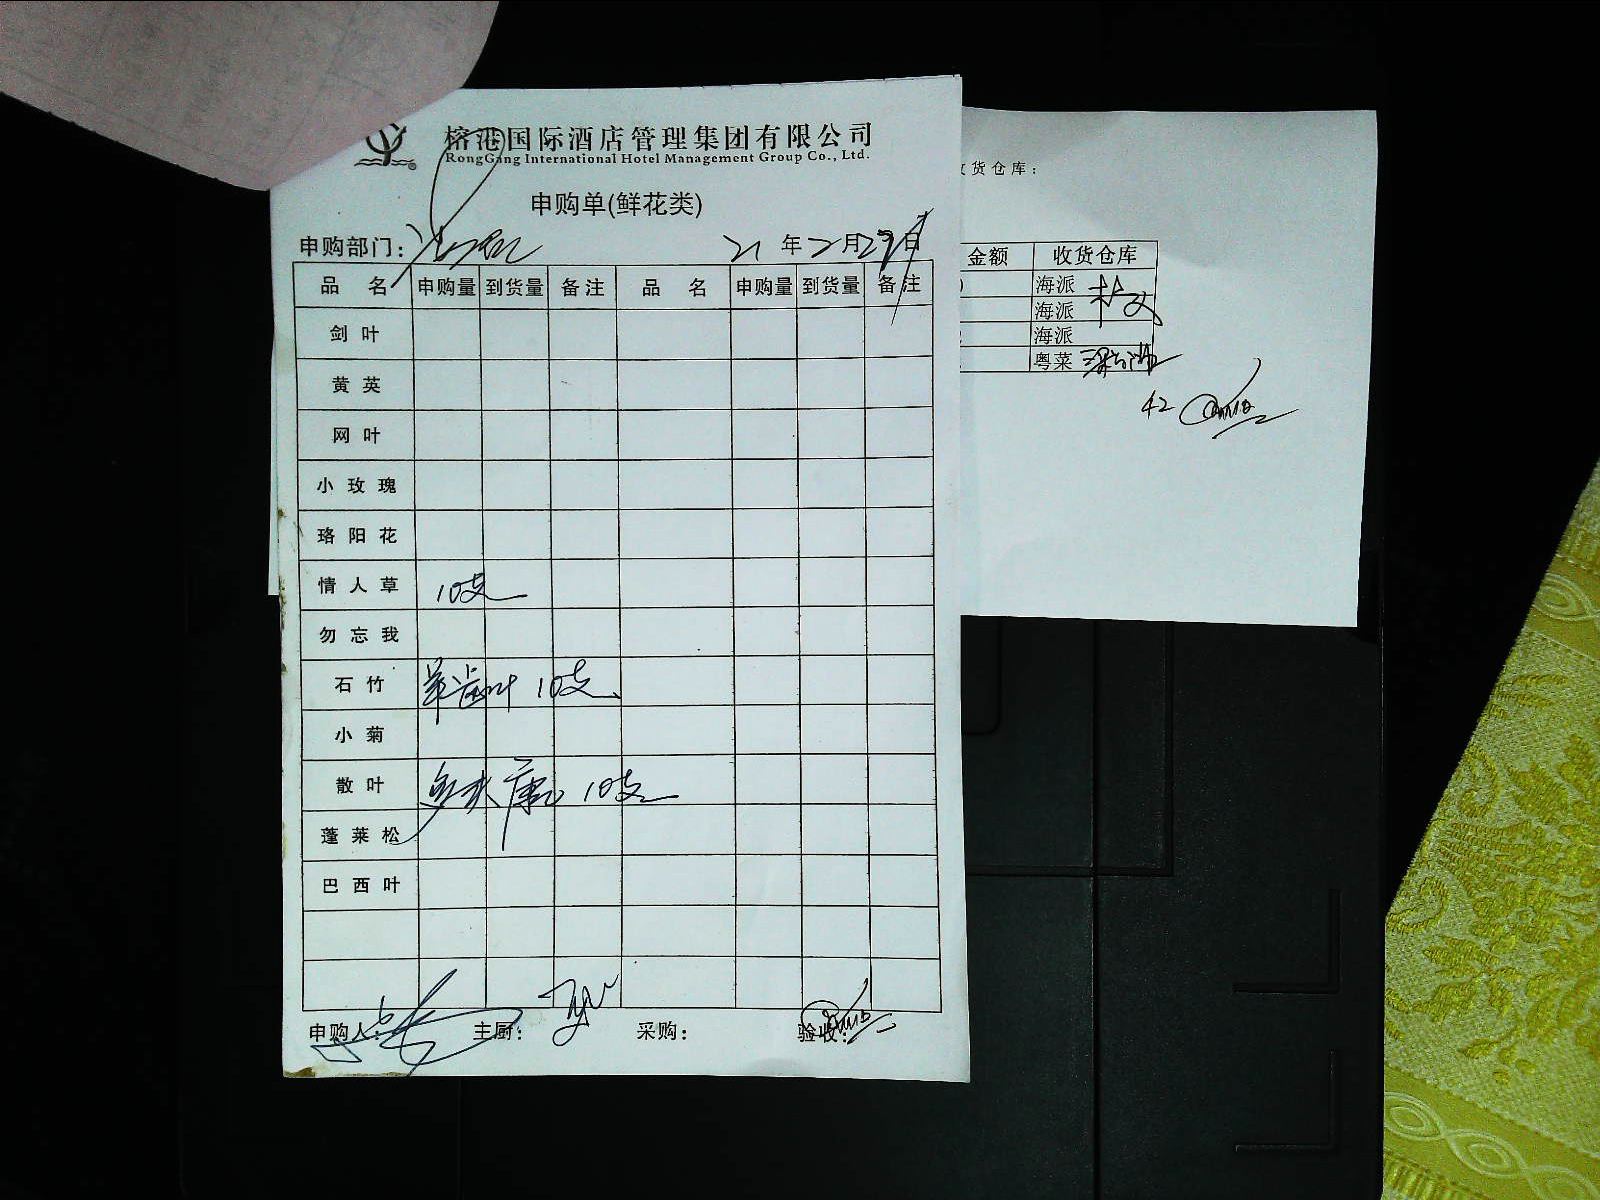 榕港国际酒店管理集团有限公司
RongGang International Hotel Management Group Co., Ltd.
申购单(鲜花类)
申购部门: 21 年 2 月 29 日
品 名 申购量 到货量 备注 品 名 申购量 到货量 备注
剑 叶
黄 英
网 叶
小 玫 瑰
珞 阳 花
情 人 草 10支
勿 忘 我
石 竹 叶 10支
小 菊
散 叶 10支
蓬 莱 松
巴 西 叶
申购人: 主厨: 采购: 验收:
货仓库:
金额 收货仓库
海派
海派
海派
粤菜
42